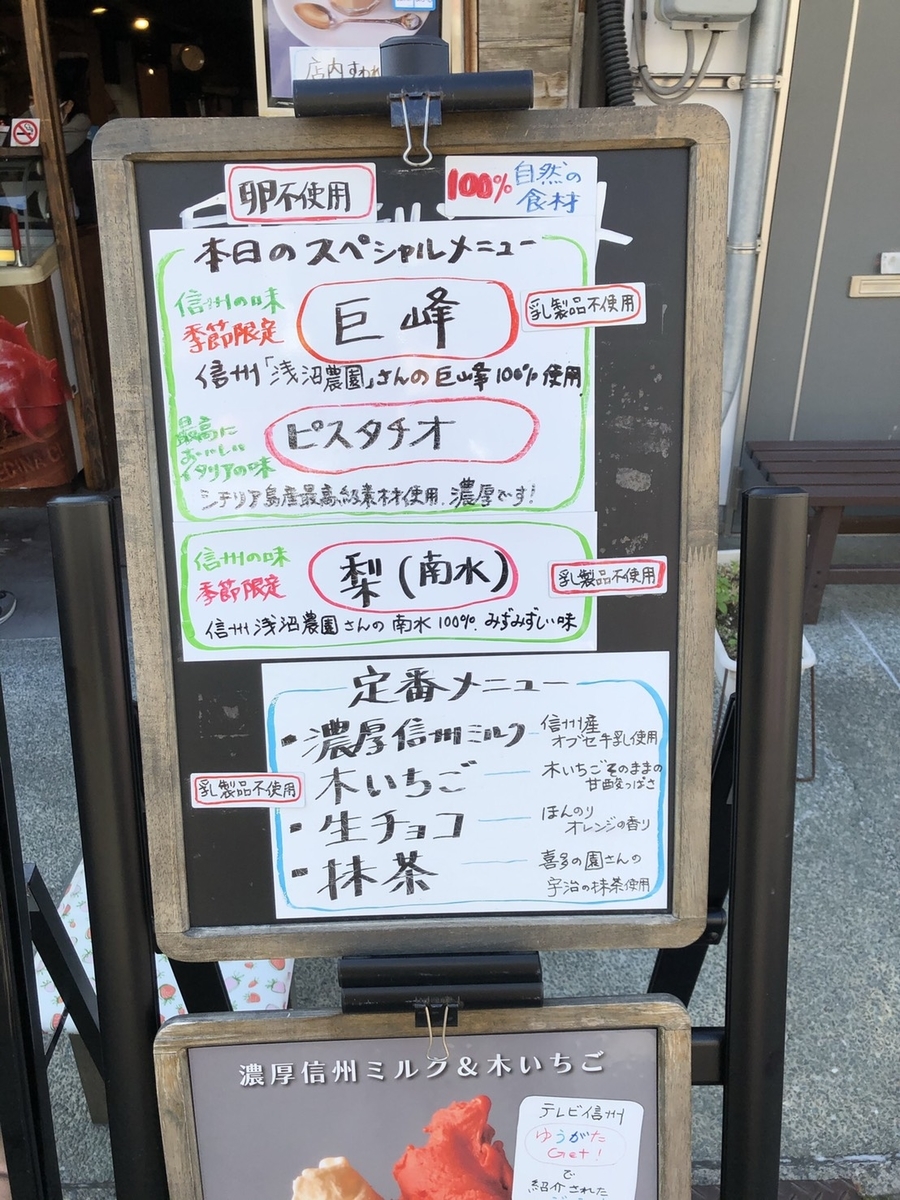 店内すわれ
卵不使用
100% 自然の
食材
本日のスペシャルメニュー
信州の味
季節限定
巨峰
乳製品不使用
信州「浅沼農園」さんの巨峰100%使用
最高に
おいしい
イタリアの味
ピスタチオ
シチリア島産最高級素材使用、濃厚です!
信州の味
季節限定
梨(南水)
乳製品不使用
信州浅沼農園さんの南水100%.みずみずしい味
定番メニュー
・濃厚信州ミルク
信州産
オブセ牛乳使用
乳製品不使用
木いちご
木いちごそのままの
甘酸っぱさ
・生チョコ
ほんのり
オレンジの香り
・抹茶
喜多の園さんの
宇治の抹茶使用
濃厚信州ミルク&木いちご
テレビ信州
ゆうがた
Get!
で
紹介された